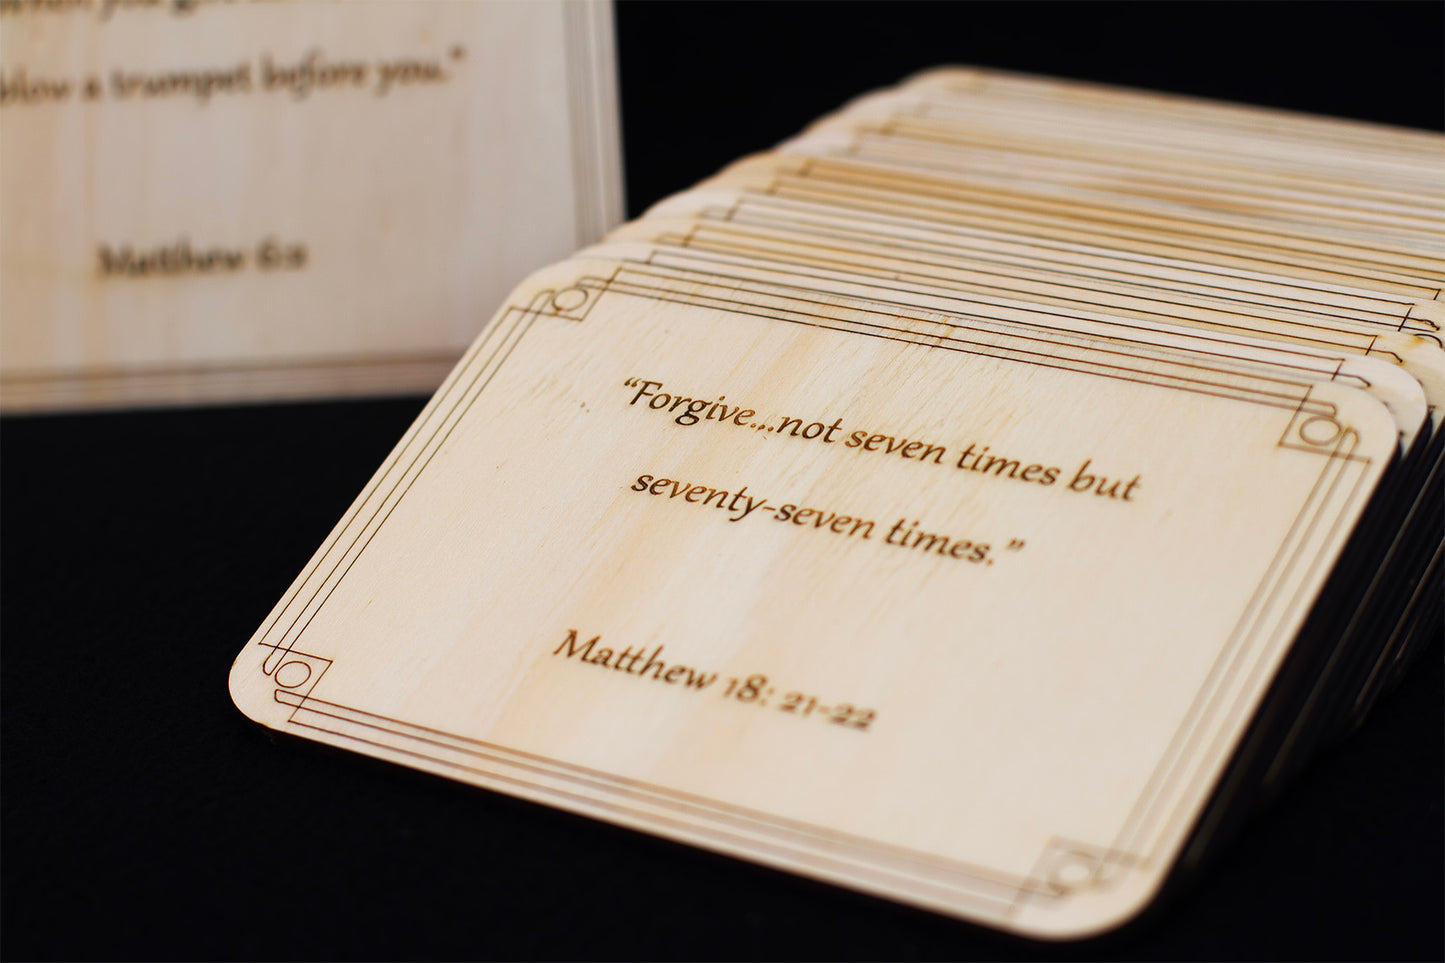 when you give
blow a trumpet before you."
Matthew 6:2
“Forgive...not seven times but
seventy-seven times.”
Matthew 18: 21-22